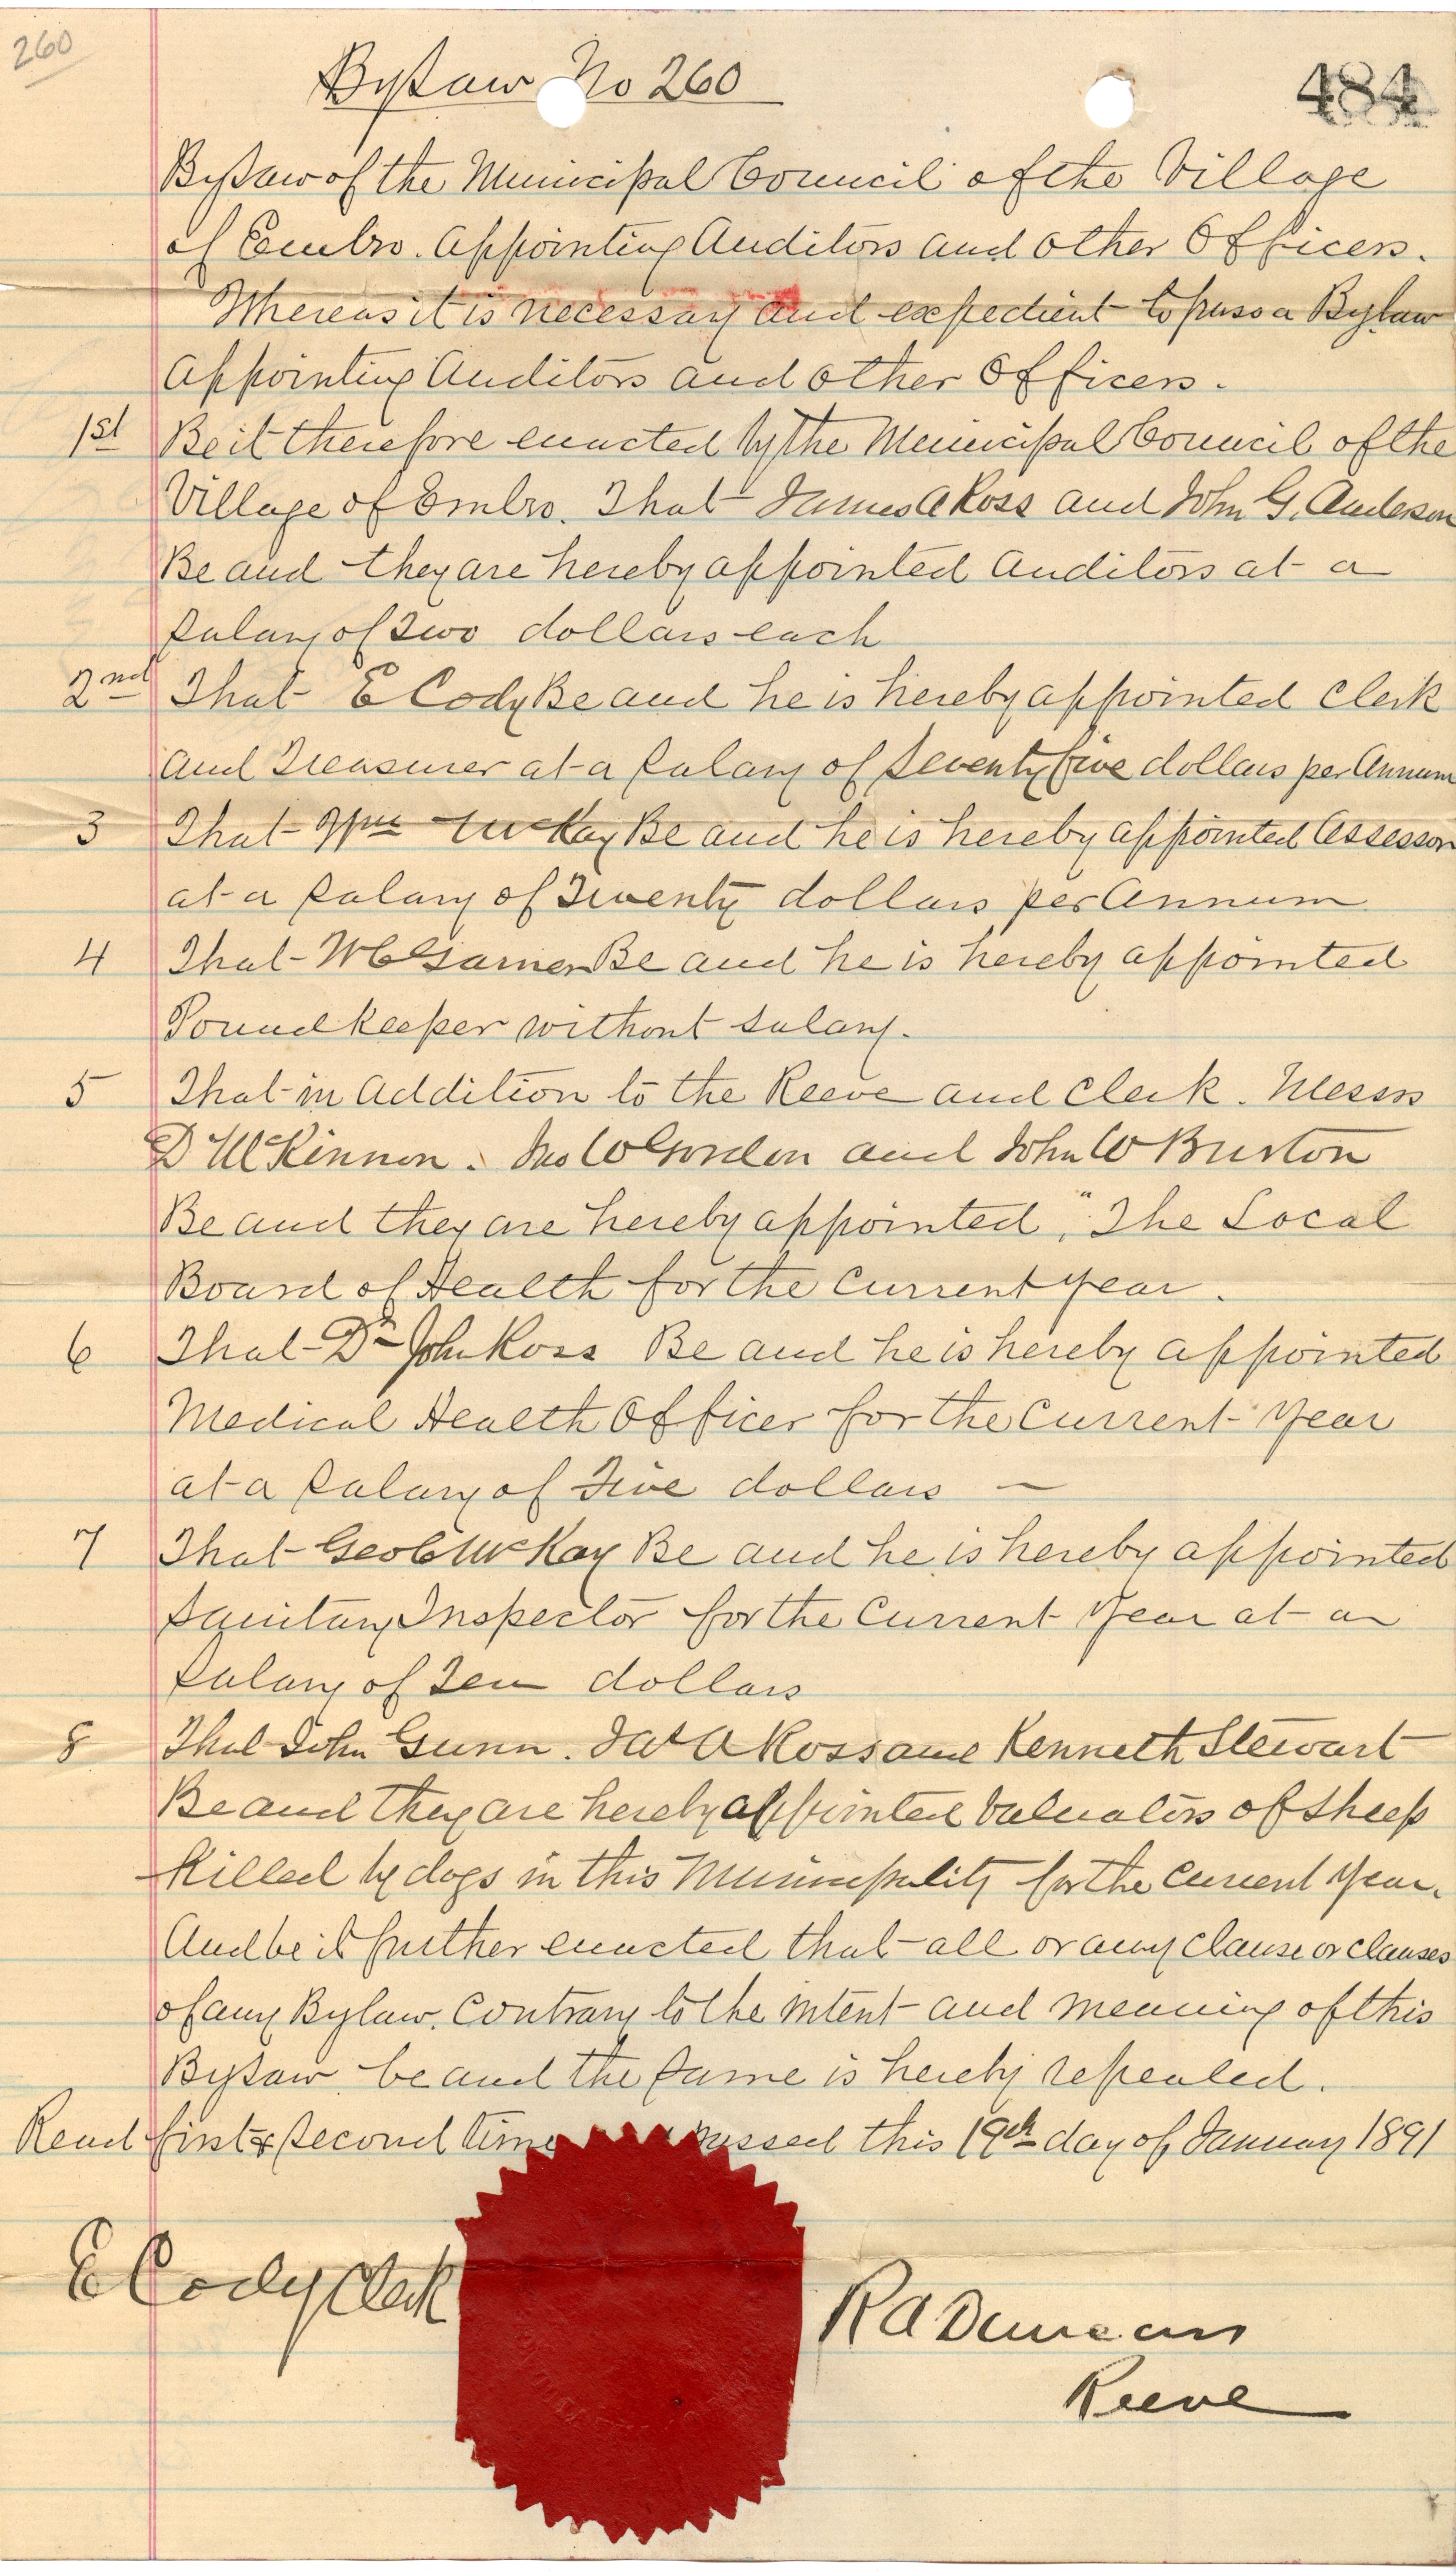 260
ByLaw No 260
484
ByLaw of the Municipal Council of the Village
of Embro. Appointing Auditors and other Officers.
Whereas it is necessary and expedient to pass a Bylaw
Appointing Auditors and other Officers.
1st Be it therefore enacted by the Municipal Council of the
Village of Embro. That James A Ross and John G. Anderson
Be and they are hereby appointed Auditors at a
Salary of Two dollars each
2nd That E Cody Be and he is hereby appointed Clerk
and Treasurer at a Salary of Seventy five dollars per Annum
3 That Wm McKay Be and he is hereby appointed Assessor
at a Salary of Twenty dollars per Annum
4 That W C Garner Be and he is hereby appointed
Poundkeeper without Salary.
5 That in Addition to the Reeve and Clerk. Messrs
D McKinnon. Jno W Gordon and John W Burton
Be and they are hereby appointed, "The Local
Board of Health for the Current year.
6 That Dr John Ross Be and he is hereby appointed
Medical Health Officer for the Current Year
at a Salary of Five dollars —
7 That Geo C McKay Be and he is hereby appointed
Sanitary Inspector for the Current Year at a
Salary of Ten dollars
8 That John Gunn. Jas A Ross and Kenneth Stewart
Be and they are hereby appointed Valuators of Sheep
Killed by dogs in this Municipality for the Current Year.
And be it further enacted that all or any Clause or Clauses
of any Bylaw. Contrary to the intent and meaning of this
ByLaw be and the Same is hereby repealed.
Read first & Second time passed this 19th day of January 1891
E Cody Clerk
R A Duncan
Reeve